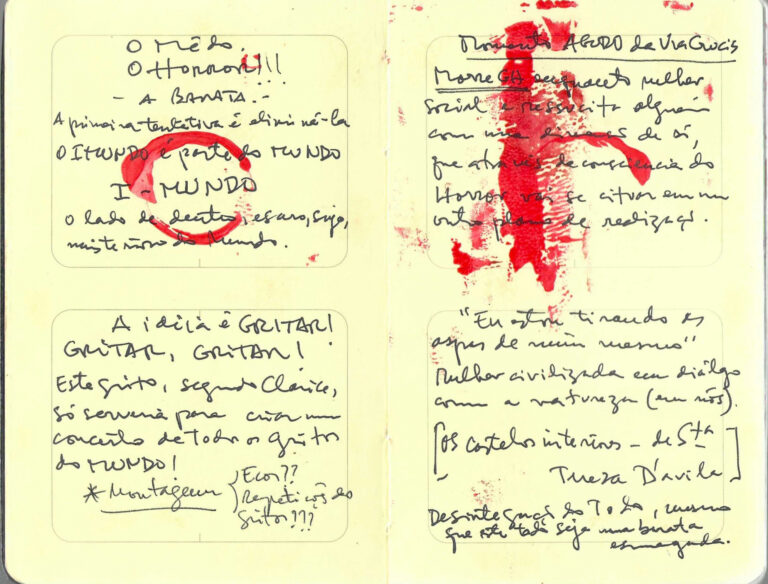 O MÊDO.
O HORROR!!!
- A BARATA. -
A primeira tentativa é eliminá-la
O IMUNDO é parte do MUNDO
I - MUNDO
O lado de dentro, escuro, sujo,
misterioso do Mundo.
A idéia é GRITAR!
GRITAR, GRITAR!
Este grito, segundo Clarice,
só serviria para criar um
concerto de todos os gritos
do MUNDO!
* Montagem { Ecos??
Repetições do
grito???
Momento AGUDO da Via Crucis
Morre GH enquanto mulher
social e ressucita alguém
com uma
que através da consciência do
Horror vai se situar em um
outro plano de realizaç.
"Eu estou tirando as
aspas de mim mesmo"
Mulher civilizada em diálogo
com a natureza (em nós).
[OS Castelos interiores - de Sta
Tereza D'avila]
Desintegraç do Todo, mesmo
que este todo seja uma barata
esmagada.